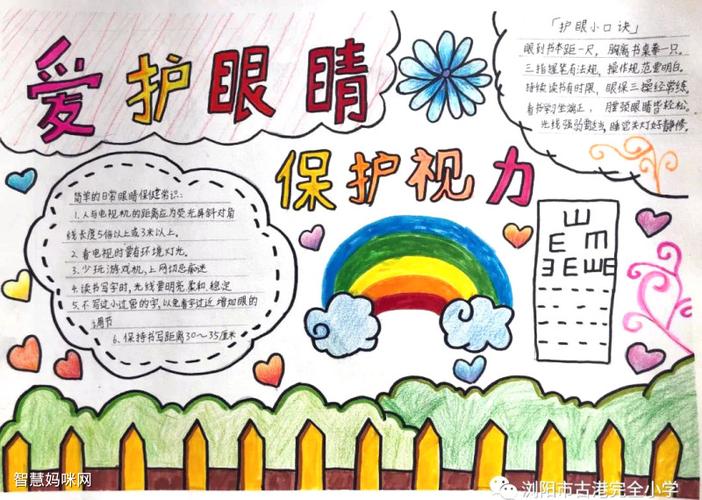 爱护眼睛
保护视力
「护眼小口诀」
眼到书本距一尺，胸离书桌拳一只。
三指握笔有法规，操作规范要明白。
持续读书有时限，眼保三操经常练。
看书学习坐端正，腰颈眼睛皆轻松。
光线强弱要适当，睡觉关灯好静修。
简单的日常眼睛保健常识：
1.人与电视机的距离应为荧光屏斜对角
线长度5倍以上或3米以上。
2.看电视时要有环境灯光。
3.少玩游戏机，上网切忌痴迷
4.读书写字时，光线要明亮.柔和.稳定
5.不写过小过密的字，以免看字过近 增加眼的
调节
6.保持书写距离30～35厘米
山
E m
ヨEШE
智慧妈咪网
浏阳市古港完全小学